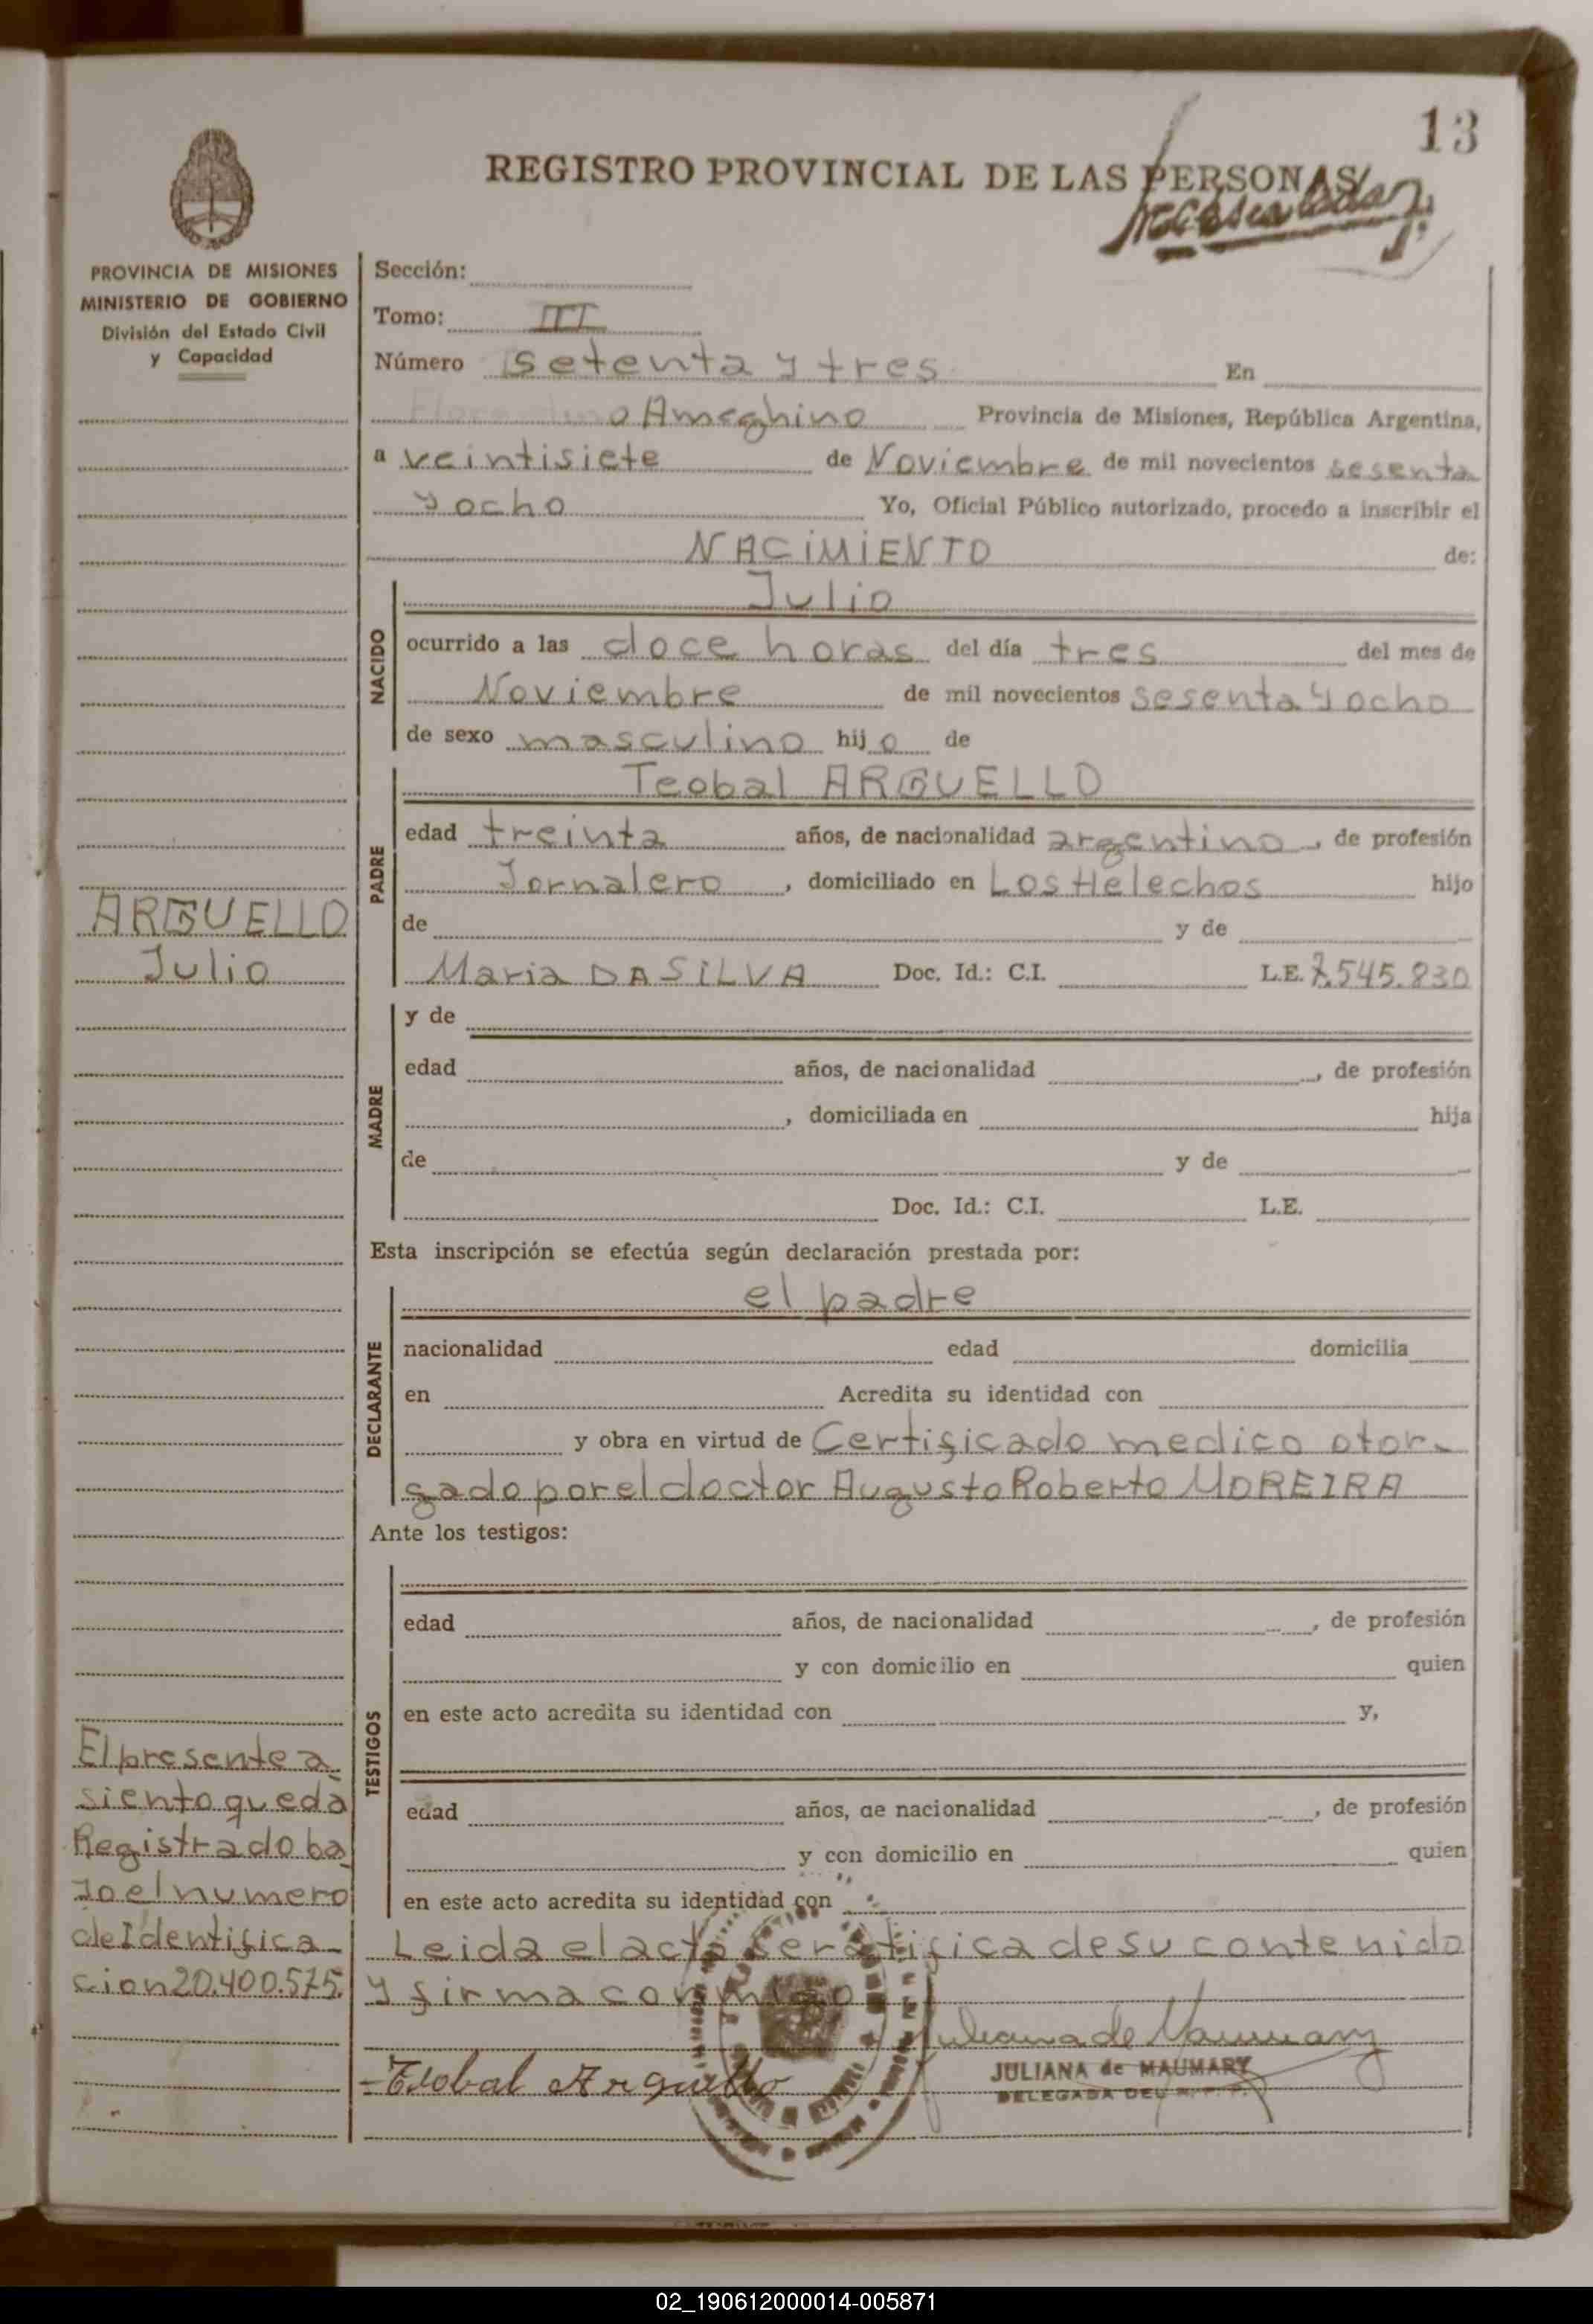 13
REGISTRO PROVINCIAL DE LAS PERSONAS
PROVINCIA DE MISIONES
MINISTERIO DE GOBIERNO
División del Estado Civil
y Capacidad
Sección:
Tomo: III
Número setenta y tres En
Ameghino Provincia de Misiones, República Argentina,
a veintisiete de Noviembre de mil novecientos sesenta
y ocho Yo, Oficial Público autorizado, procedo a inscribir el
NACIMIENTO de:
NACIDO
Julio
ocurrido a las doce horas del día tres del mes de
Noviembre de mil novecientos sesenta y ocho
de sexo masculino hijo de
PADRE
Teobal ARGUELLO
edad treinta años, de nacionalidad argentino, de profesión
Jornalero, domiciliado en Los Helechos hijo
de y de
Maria DA SILVA Doc. Id.: C.I. L.E. 7.545.830
ARGUELLO
Julio
MADRE
y de
edad años, de nacionalidad , de profesión
, domiciliada en hija
de y de
Doc. Id.: C.I. L.E.
Esta inscripción se efectúa según declaración prestada por:
DECLARANTE
el padre
nacionalidad edad domicilia
en Acredita su identidad con
y obra en virtud de Certificado medico otor-
gado por el doctor Augusto Roberto MOREIRA
Ante los testigos:
TESTIGOS
edad años, de nacionalidad , de profesión
y con domicilio en quien
en este acto acredita su identidad con y,
edad años, de nacionalidad , de profesión
y con domicilio en quien
en este acto acredita su identidad con
El presente a
siento queda
Registrado ba
jo el numero
de Identifica-
cion 20.400.575.
Leida el acta se ratifica de su contenido
y firma conmigo
Teobal Arguello
Juliana de Maumary
JULIANA de MAUMARY
DELEGADA DEL R.P.P.
02_190612000014-005871